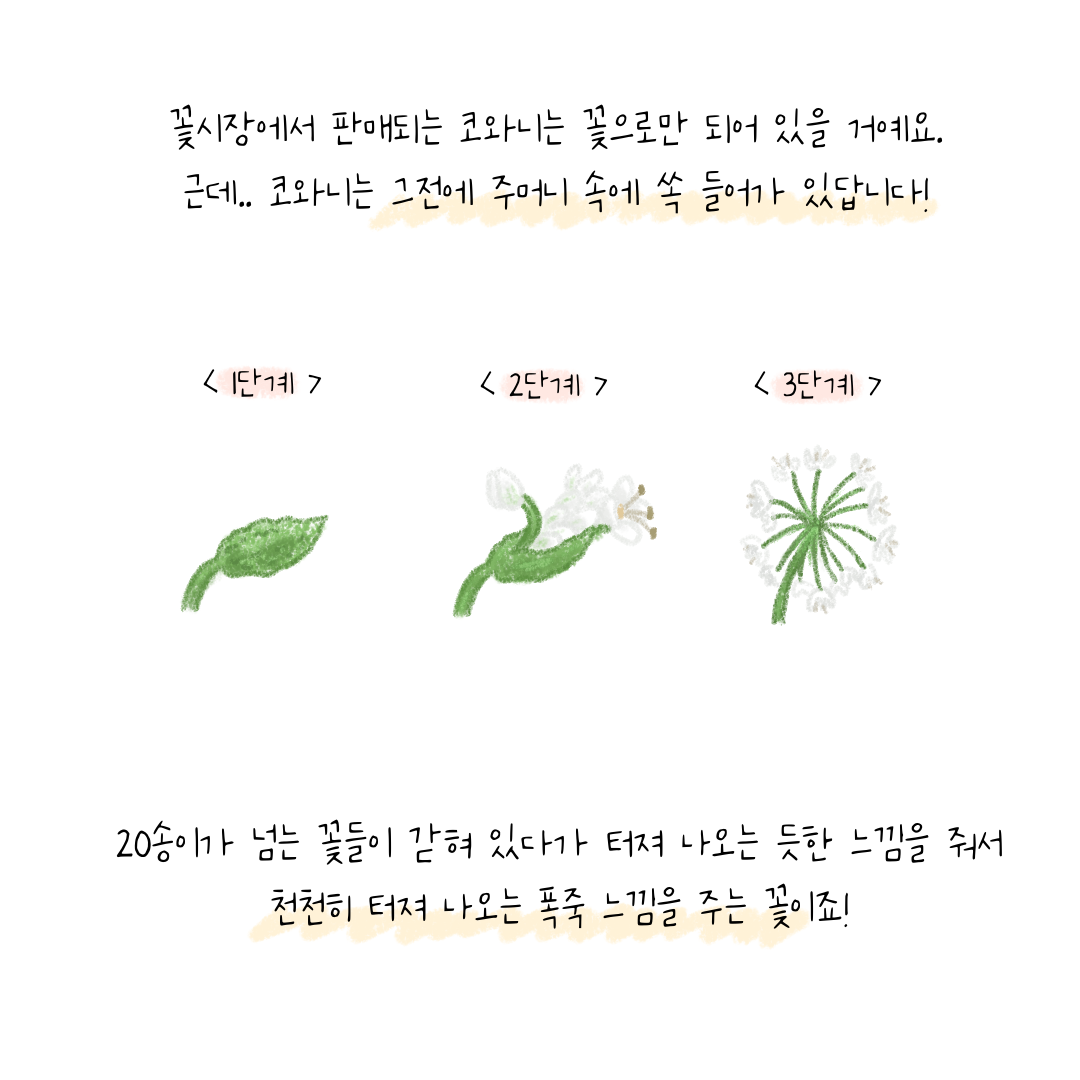 꽃시장에서 판매되는 코와니는 꽃으로만 되어 있을 거예요.
근데.. 코와니는 그전에 주머니 속에 쏙 들어가 있답니다!
< 1단계 > < 2단계 > < 3단계 >
20송이가 넘는 꽃들이 갇혀 있다가 터져 나오는 듯한 느낌을 줘서
천천히 터져 나오는 폭죽 느낌을 주는 꽃이죠!